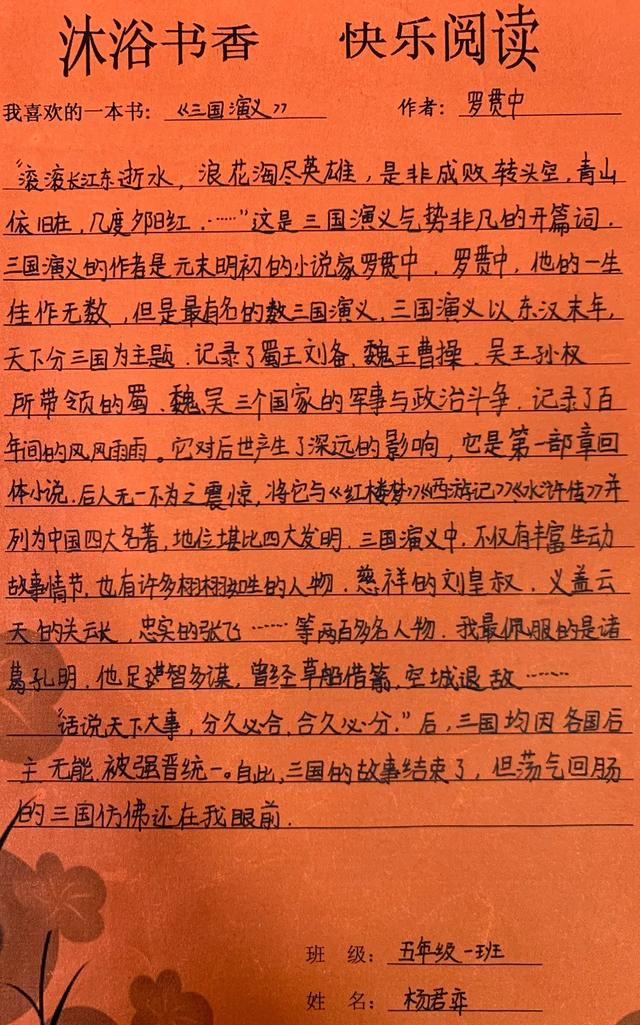 沐浴书香 快乐阅读
我喜欢的一本书：《三国演义》 作者：罗贯中
“滚滚长江东逝水，浪花淘尽英雄，是非成败转头空，青山
依旧在，几度夕阳红．……”这是三国演义气势非凡的开篇词．
三国演义的作者是元末明初的小说家罗贯中．罗贯中，他的一生
佳作无数，但是最有名的数三国演义，三国演义以东汉末年，
天下分三国为主题．记录了蜀王刘备、魏王曹操、吴王孙权
所带领的蜀、魏、吴三个国家的军事与政治斗争．记录了百
年间的风风雨雨。它对后世产生了深远的影响，它是第一部章回
体小说．后人无一不为之震惊，将它与《红楼梦》《西游记》《水浒传》并
列为中国四大名著，地位堪比四大发明．三国演义中．不仅有丰富生动
故事情节，也有许多栩栩如生的人物．慈祥的刘皇叔．义盖云
天的关云长，忠实的张飞……等两百多名人物．我最佩服的是诸
葛孔明．他足智多谋，曾经草船借箭，空城退敌……
“话说天下大事，分久必合，合久必分．”后，三国均因各国后
主无能，被强晋统一。自此，三国的故事结束了，但荡气回肠
的三国仿佛还在我眼前．
班 级：五年级一班
姓 名：杨君弈